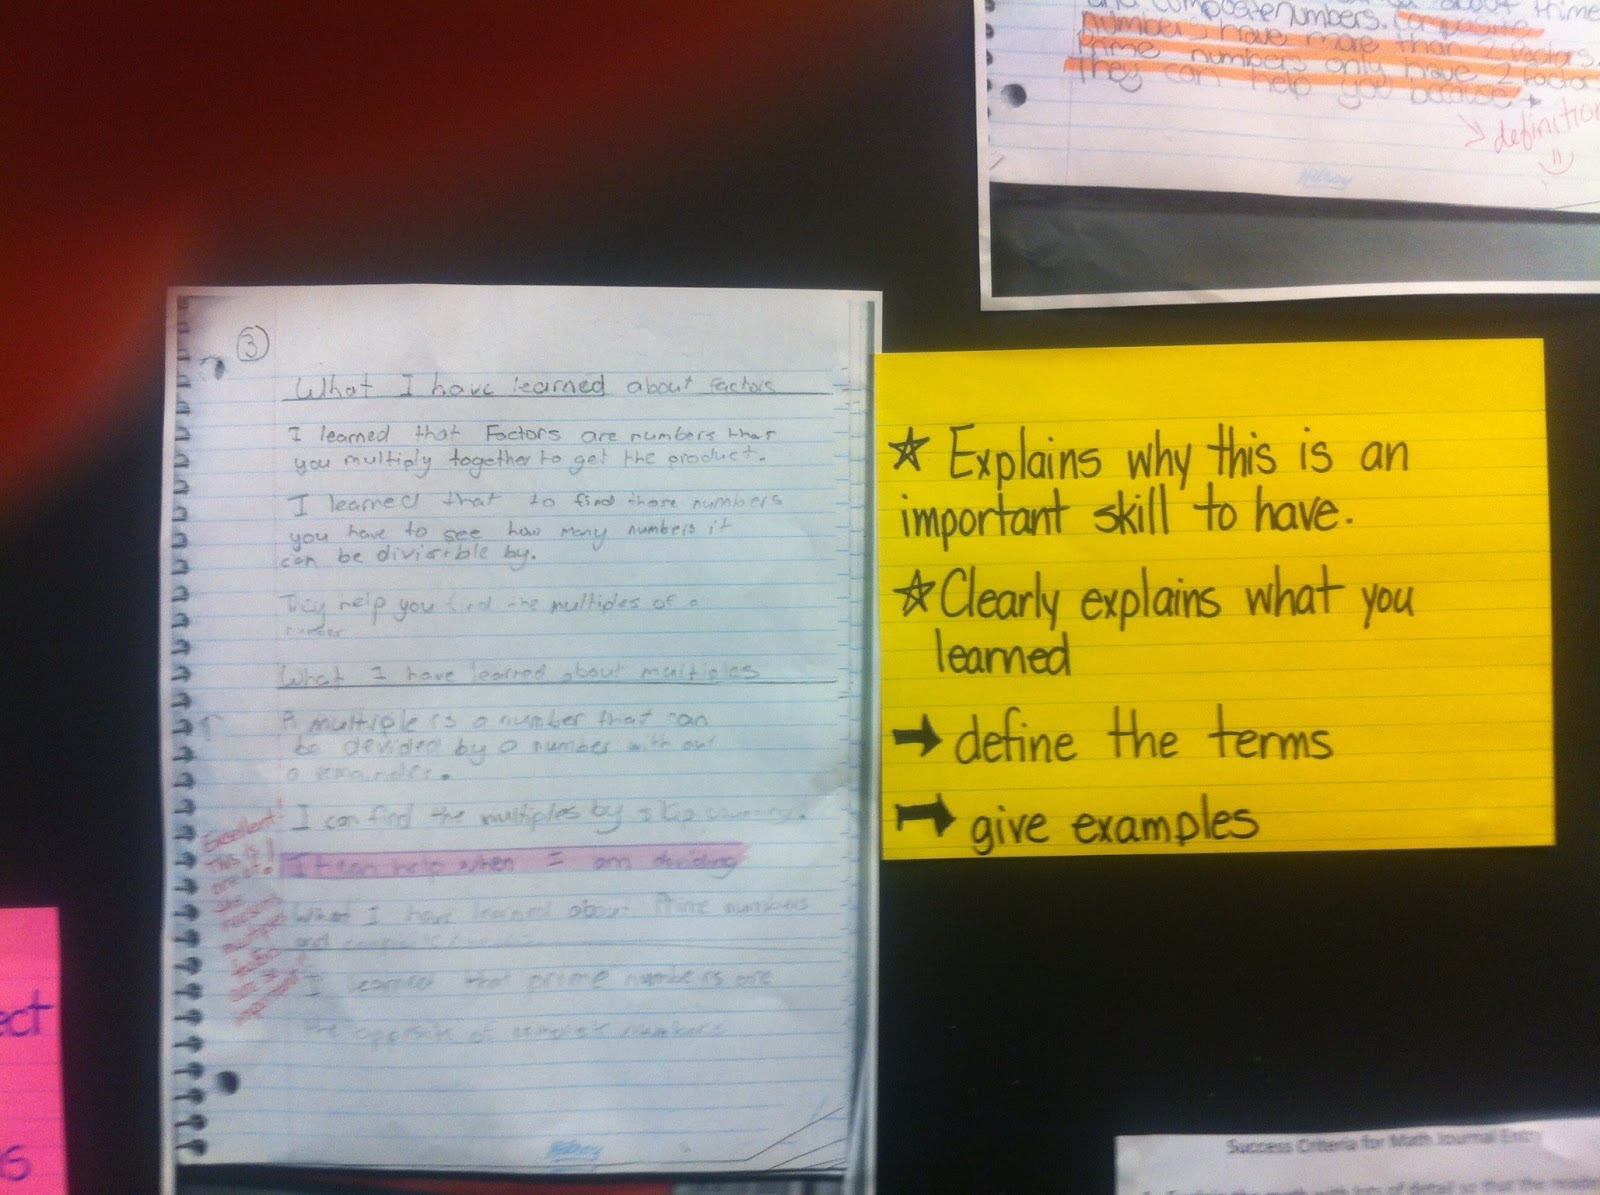 and composite numbers. Composite
numbers have more than 2 factors.
Prime numbers only have 2 factor
They can help you because
definition
Hilroy
3
What I have learned about factors
I learned that Factors are numbers that
you multiply together to get the product.
I learned that to find those numbers
you have to see how many numbers it
can be divisible by.
They help you find the multiples of a
What I have learned about multiples
A multiple is a number that can
be devided by a number with out
a remainder.
I can find the multiples by skip counting.
It can help when I am deviding
What I have learned about Prime numbers
and
I learned that prime numbers are
the opposite of numbers
Excellent!
This is
one of!
the
Hilroy
☆ Explains why this is an
important skill to have.
☆ Clearly explains what you
learned
→ define the terms
→ give examples
ect
s
Success Criteria for Math Journal Entry